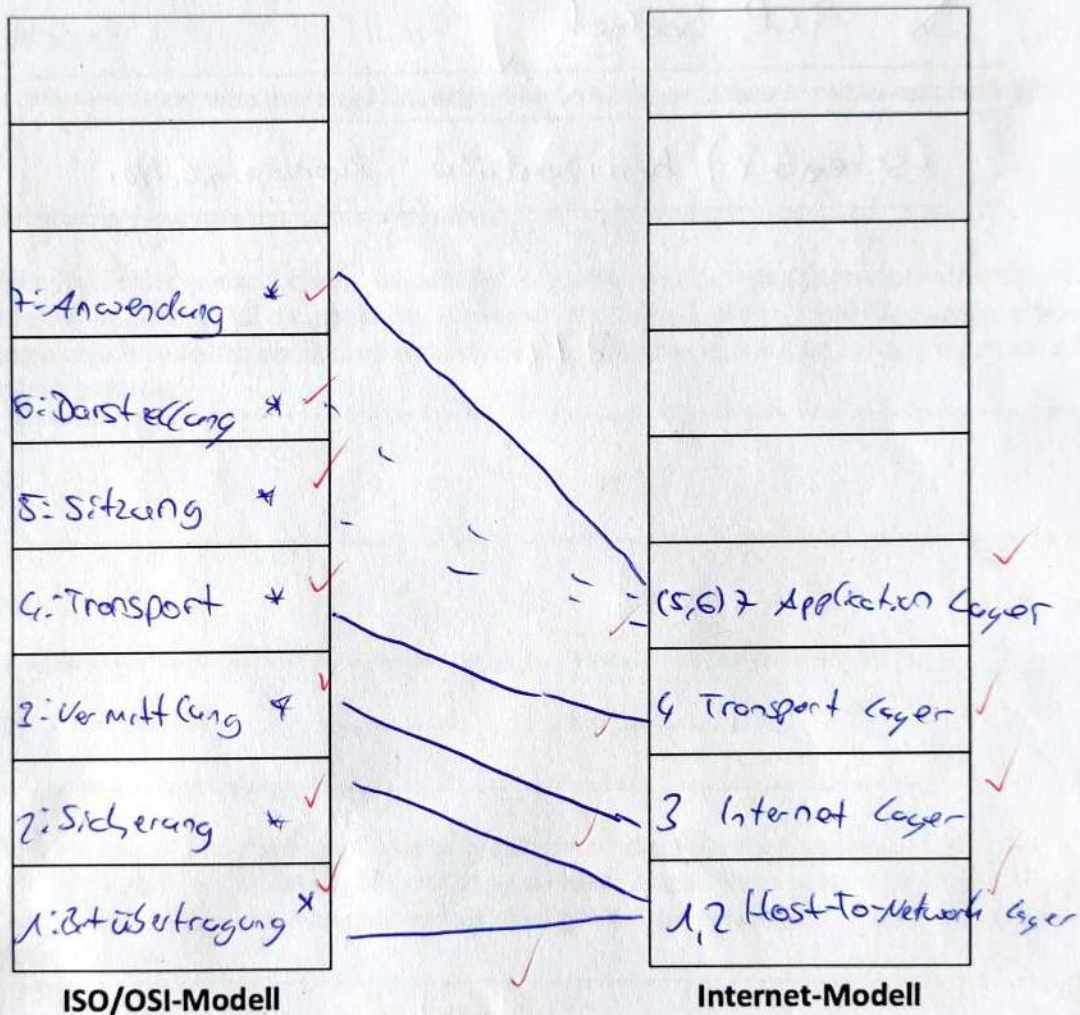 7: Anwendung *
6: Darstellung *
5: Sitzung *
4: Transport *
3: Vermittlung *
2: Sicherung *
1: Bitübertragung *
ISO/OSI-Modell
(5,6) 7 Application Layer
4 Transport Layer
3 Internet Layer
1,2 Host-To-Network Layer
Internet-Modell